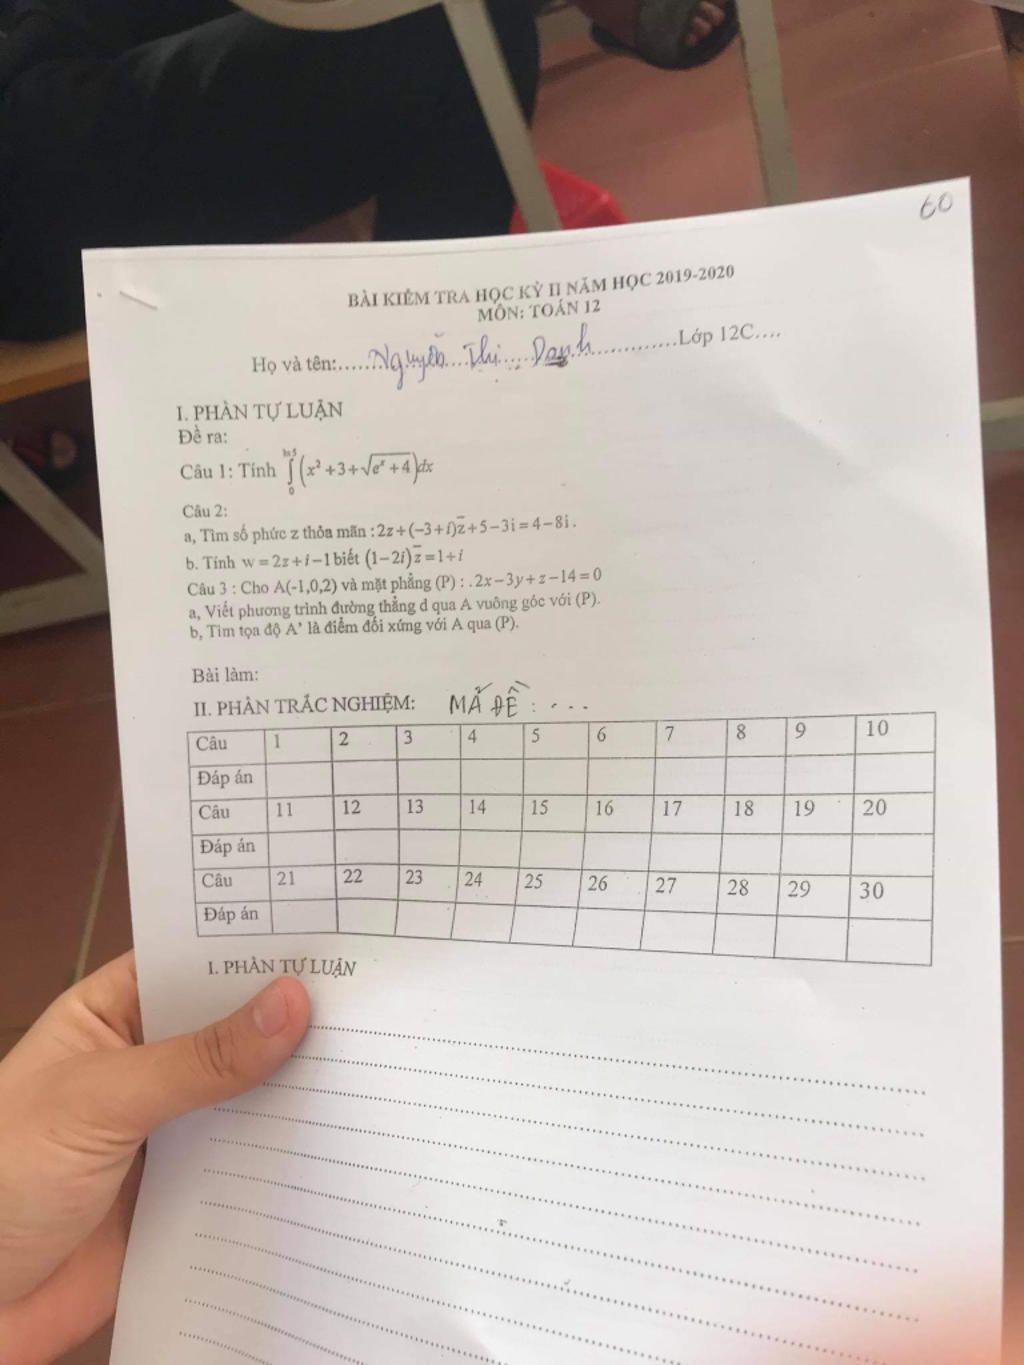 60
BÀI KIỂM TRA HỌC KỲ II NĂM HỌC 2019-2020
MÔN: TOÁN 12
Họ và tên:......Nguyễn Thị Danh..............Lớp 12C....
I. PHẦN TỰ LUẬN
Đề ra:
Câu 1: Tính ∫₀^{ln5} (x² + 3 + √(eˣ + 4))dx
Câu 2:
a, Tìm số phức z thỏa mãn : 2z + (-3 + i)z̄ + 5 - 3i = 4 - 8i .
b. Tính w = 2z + i - 1 biết (1 - 2i)z̄ = 1 + i
Câu 3 : Cho A(-1,0,2) và mặt phẳng (P) : .2x - 3y + z - 14 = 0
a, Viết phương trình đường thẳng d qua A vuông góc với (P).
b, Tìm tọa độ A' là điểm đối xứng với A qua (P).
Bài làm:
II. PHẦN TRẮC NGHIỆM: MÃ ĐỀ : ...
Câu 1 2 3 4 5 6 7 8 9 10
Đáp án
Câu 11 12 13 14 15 16 17 18 19 20
Đáp án
Câu 21 22 23 24 25 26 27 28 29 30
Đáp án
I. PHẦN TỰ LUẬN